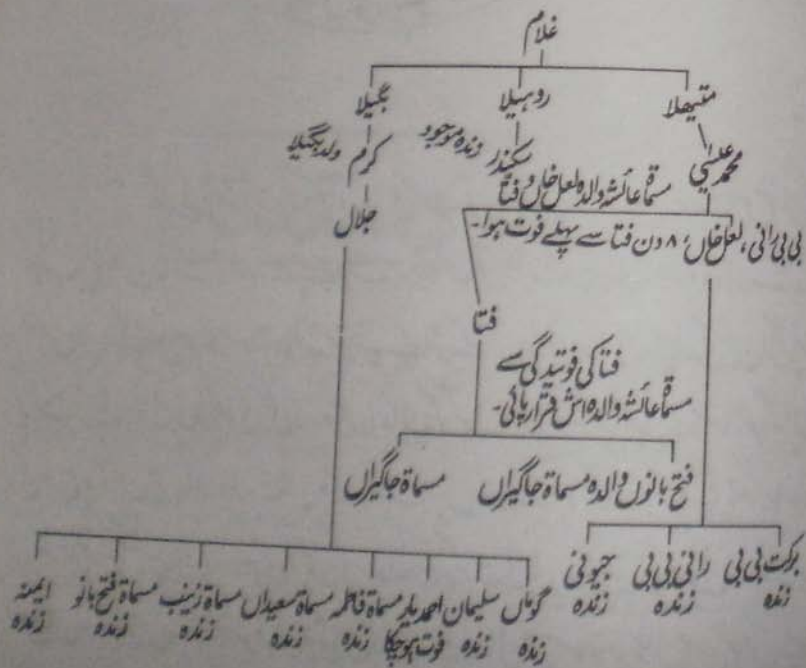 غلام
متیھلا روہیلا بگیلا
محمد عیسیٰ سکندر زندہ موجود کرم ولد بگیلا
مسماۃ عائشہ والدہ لعل خاں و فتا
جلال
بی بی رانی، لعل خاں، ۸ دن فتا سے پہلے فوت ہوا۔
فتا
فتا کی فوتیدگی سے
مسماۃ عائشہ والدہ اش قرار پائی۔
فتح بانوں والدہ مسماۃ جاگیراں مسماۃ جاگیراں
برکت بی بی زندہ رانی بی بی زندہ جیونی زندہ
گوماں زندہ سلیمان زندہ احمد یار فوت ہو چکا مسماۃ فاطمہ زندہ مسماۃ سعیداں زندہ مسماۃ زینب زندہ مسماۃ فتح بانو زندہ ایمنہ زندہ